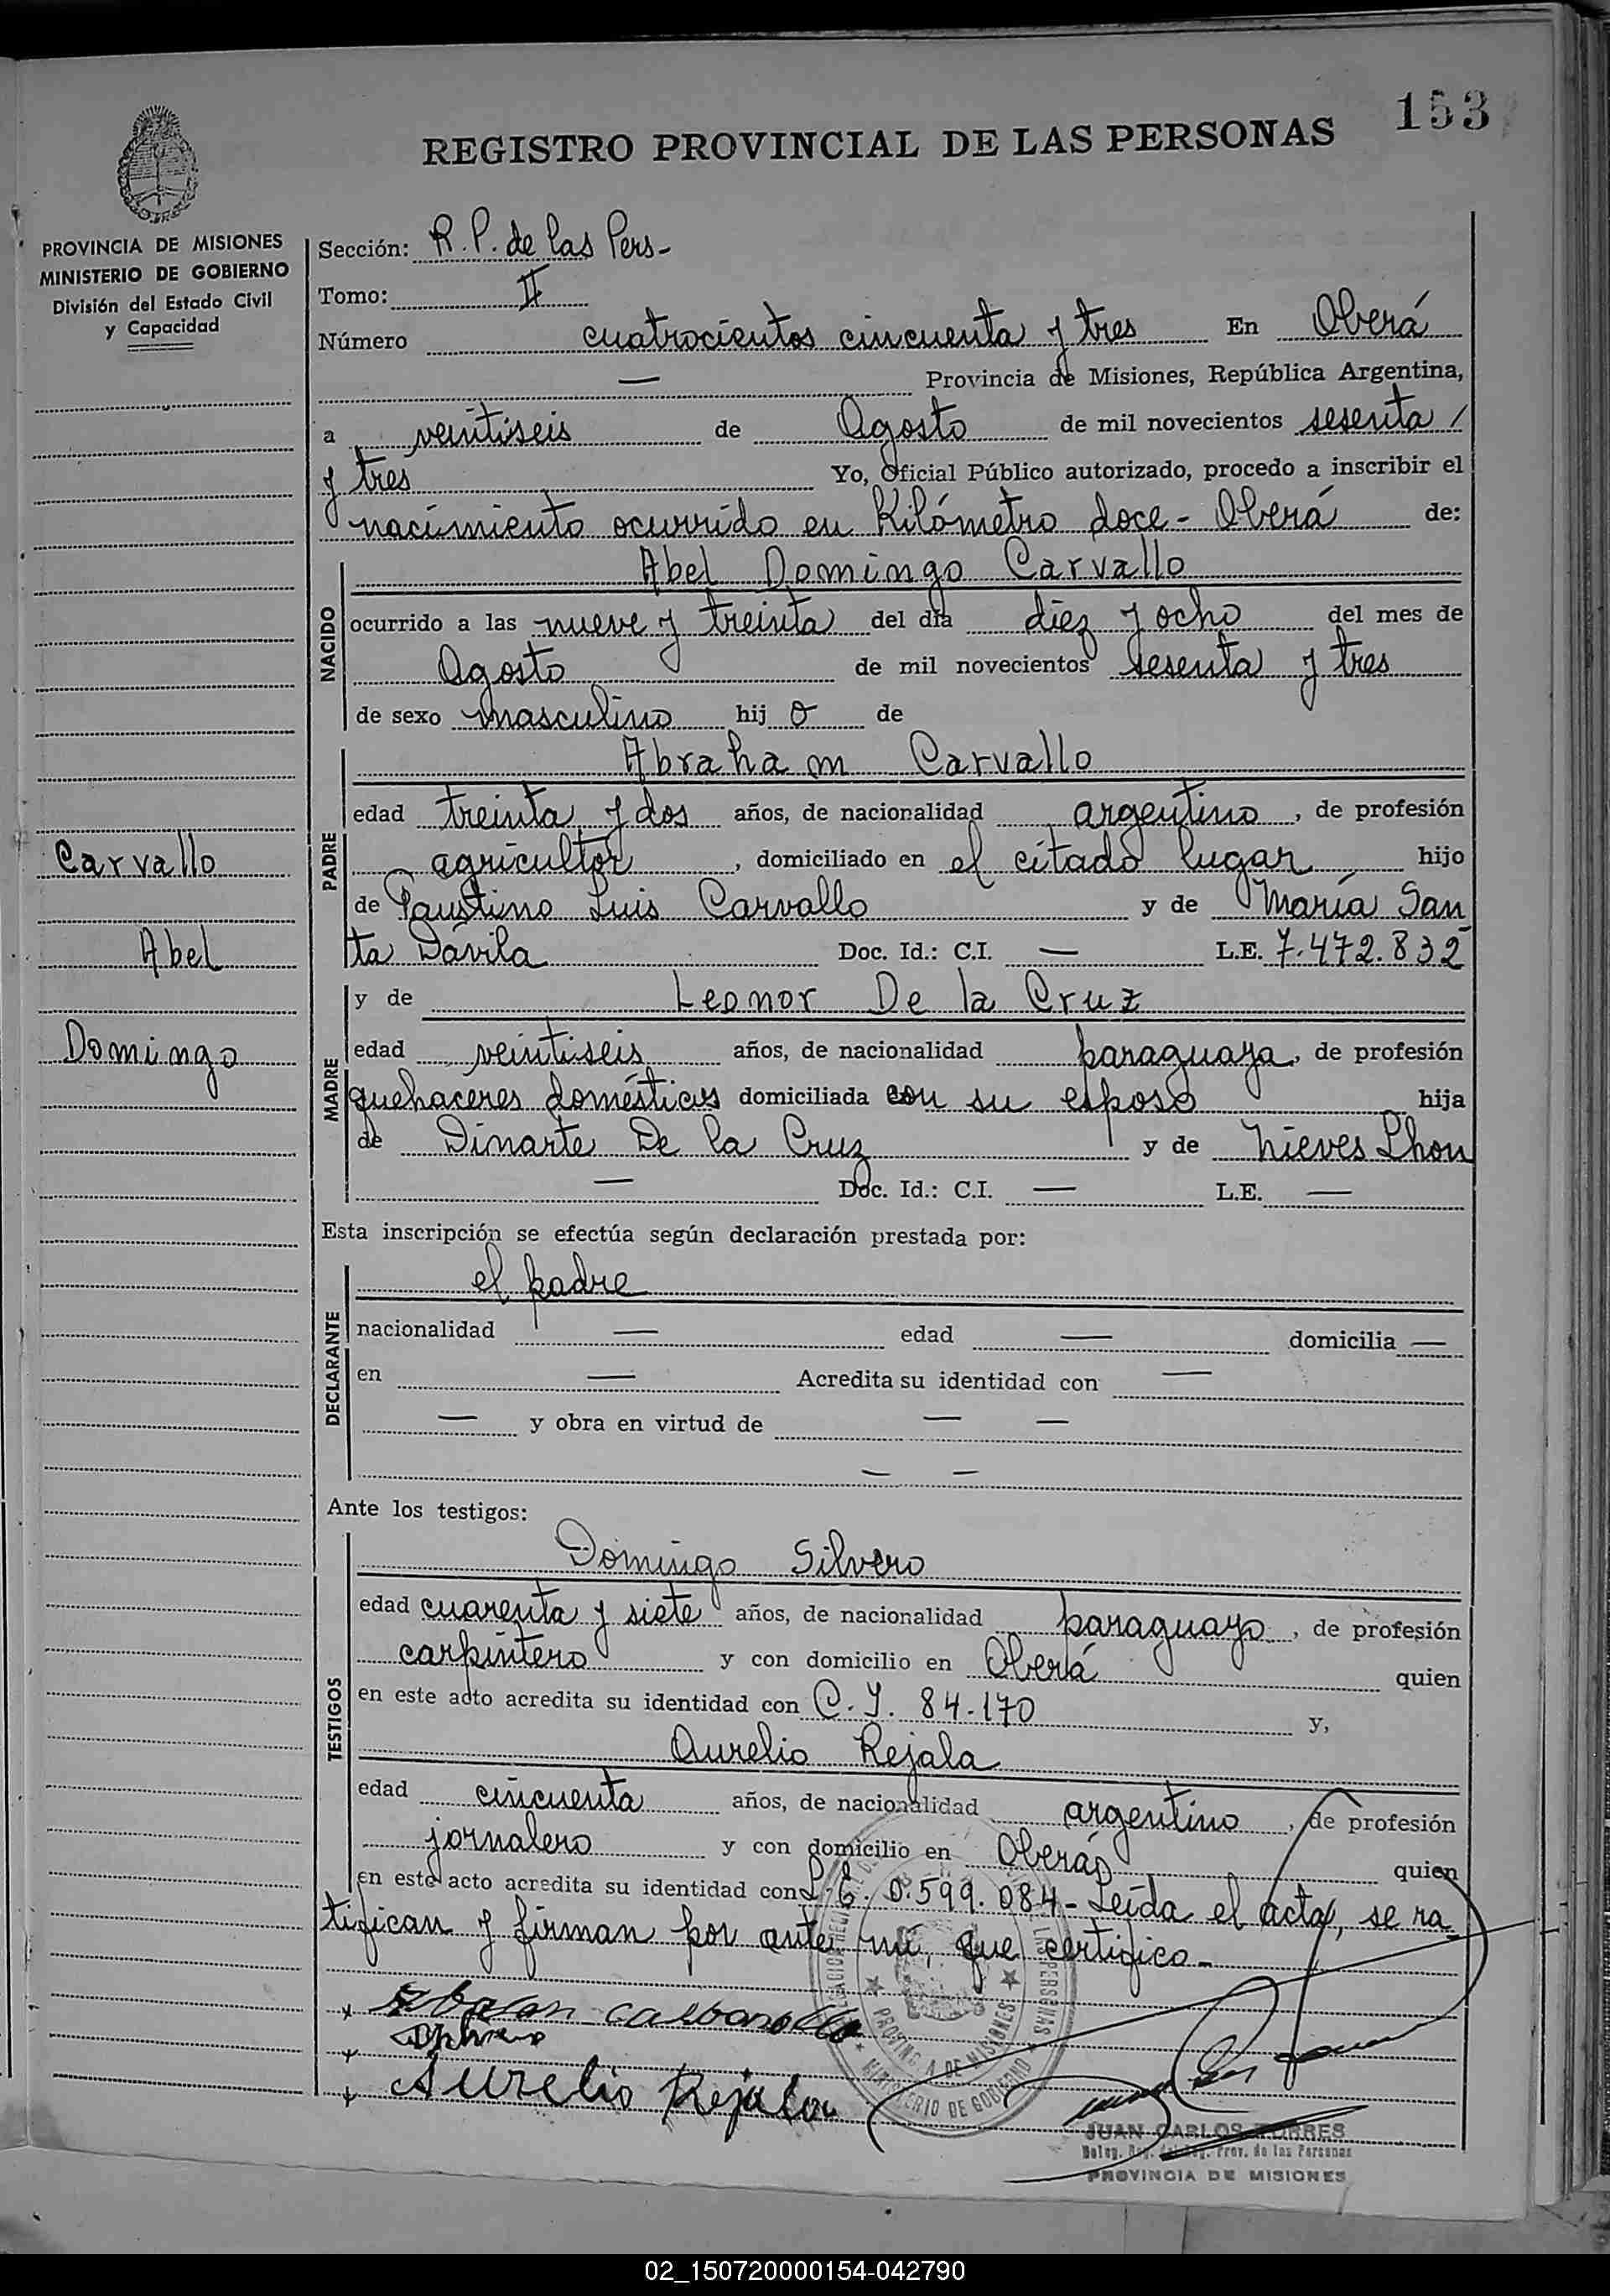 153
REGISTRO PROVINCIAL DE LAS PERSONAS
PROVINCIA DE MISIONES
MINISTERIO DE GOBIERNO
División del Estado Civil
y Capacidad
Sección: R.P. de las Pers-
Tomo: II
Número cuatrocientos cincuenta y tres En Oberá
— Provincia de Misiones, República Argentina,
a veintiseis de Agosto de mil novecientos sesenta /
y tres Yo, Oficial Público autorizado, procedo a inscribir el
nacimiento ocurrido en Kilómetro doce - Oberá de:
NACIDO
Abel Domingo Carvallo
ocurrido a las nueve y treinta del día diez y ocho del mes de
Agosto de mil novecientos sesenta y tres
de sexo masculino hij o de
PADRE
Abraham Carvallo
edad treinta y dos años, de nacionalidad argentino, de profesión
agricultor, domiciliado en el citado lugar hijo
de Faustino Luis Carvallo y de María San
ta Dávila Doc. Id.: C.I. — L.E. 7.472.832
Carvallo
Abel
Domingo
MADRE
y de Leonor De la Cruz
edad veintiseis años, de nacionalidad paraguaya, de profesión
quehaceres domésticos domiciliada con su esposo hija
de Dinarte De la Cruz y de Nieves Lhou
— Doc. Id.: C.I. — L.E. —
Esta inscripción se efectúa según declaración prestada por:
DECLARANTE
el padre
nacionalidad — edad — domicilia —
en — Acredita su identidad con —
— y obra en virtud de — —
— —
Ante los testigos:
TESTIGOS
Domingo Silvero
edad cuarenta y siete años, de nacionalidad paraguayo, de profesión
carpintero y con domicilio en Oberá quien
en este acto acredita su identidad con C.I. 84.170 y,
Aurelio Rejala
edad cincuenta años, de nacionalidad argentino, de profesión
jornalero y con domicilio en Oberá quien
en este acto acredita su identidad con L.E. 0.599.084 - Leída el acta, se ra
tifican y firman por ante mí, que certifico -
PROVINCIA DE MISIONES
MINISTERIO DE GOBIERNO
Aurelio Rejala
JUAN CARLOS TORRES
Prov. de las Personas
PROVINCIA DE MISIONES
02_150720000154-042790